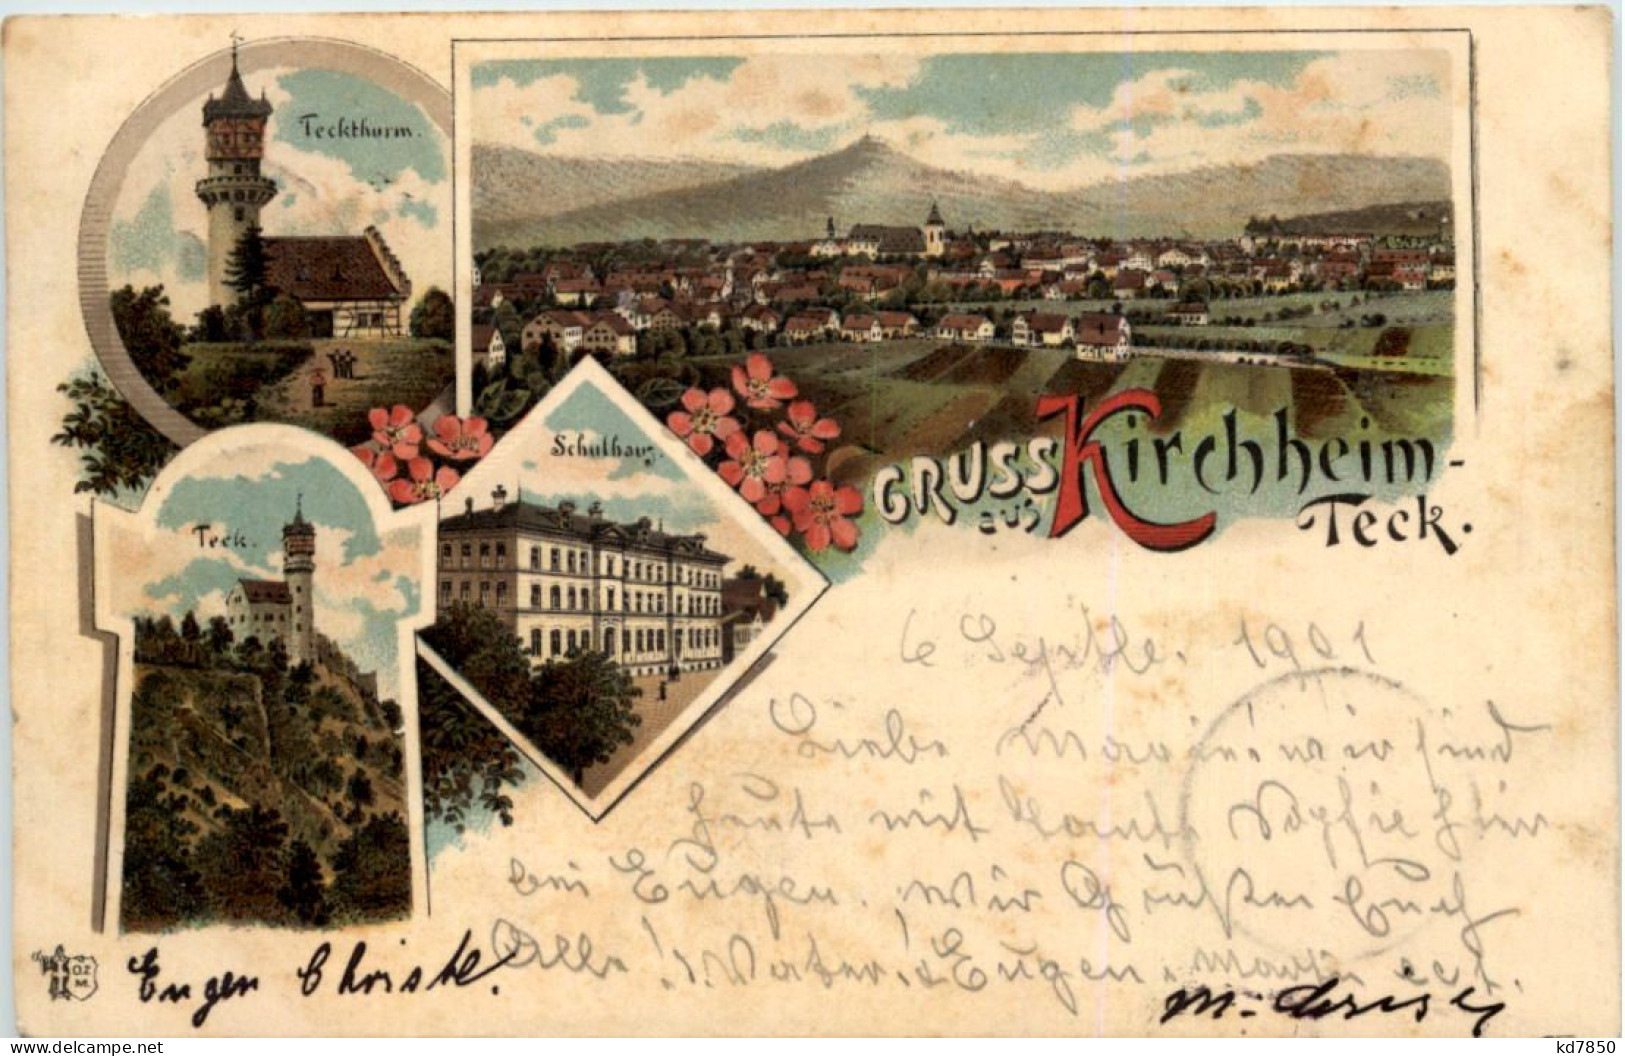 Teckthurm.
Schulhaus.
Teck.
GRUSS aus Kirchheim-
Teck.
6 Septbr. 1901
Liebe Marie! wir sind
heute mit Tante Sophie hier
bei Eugen. Wir Grüßen Euch
Alle! Vater! Eugen.
Eugen Christ
O.Z.M.
delcampe
kd7850